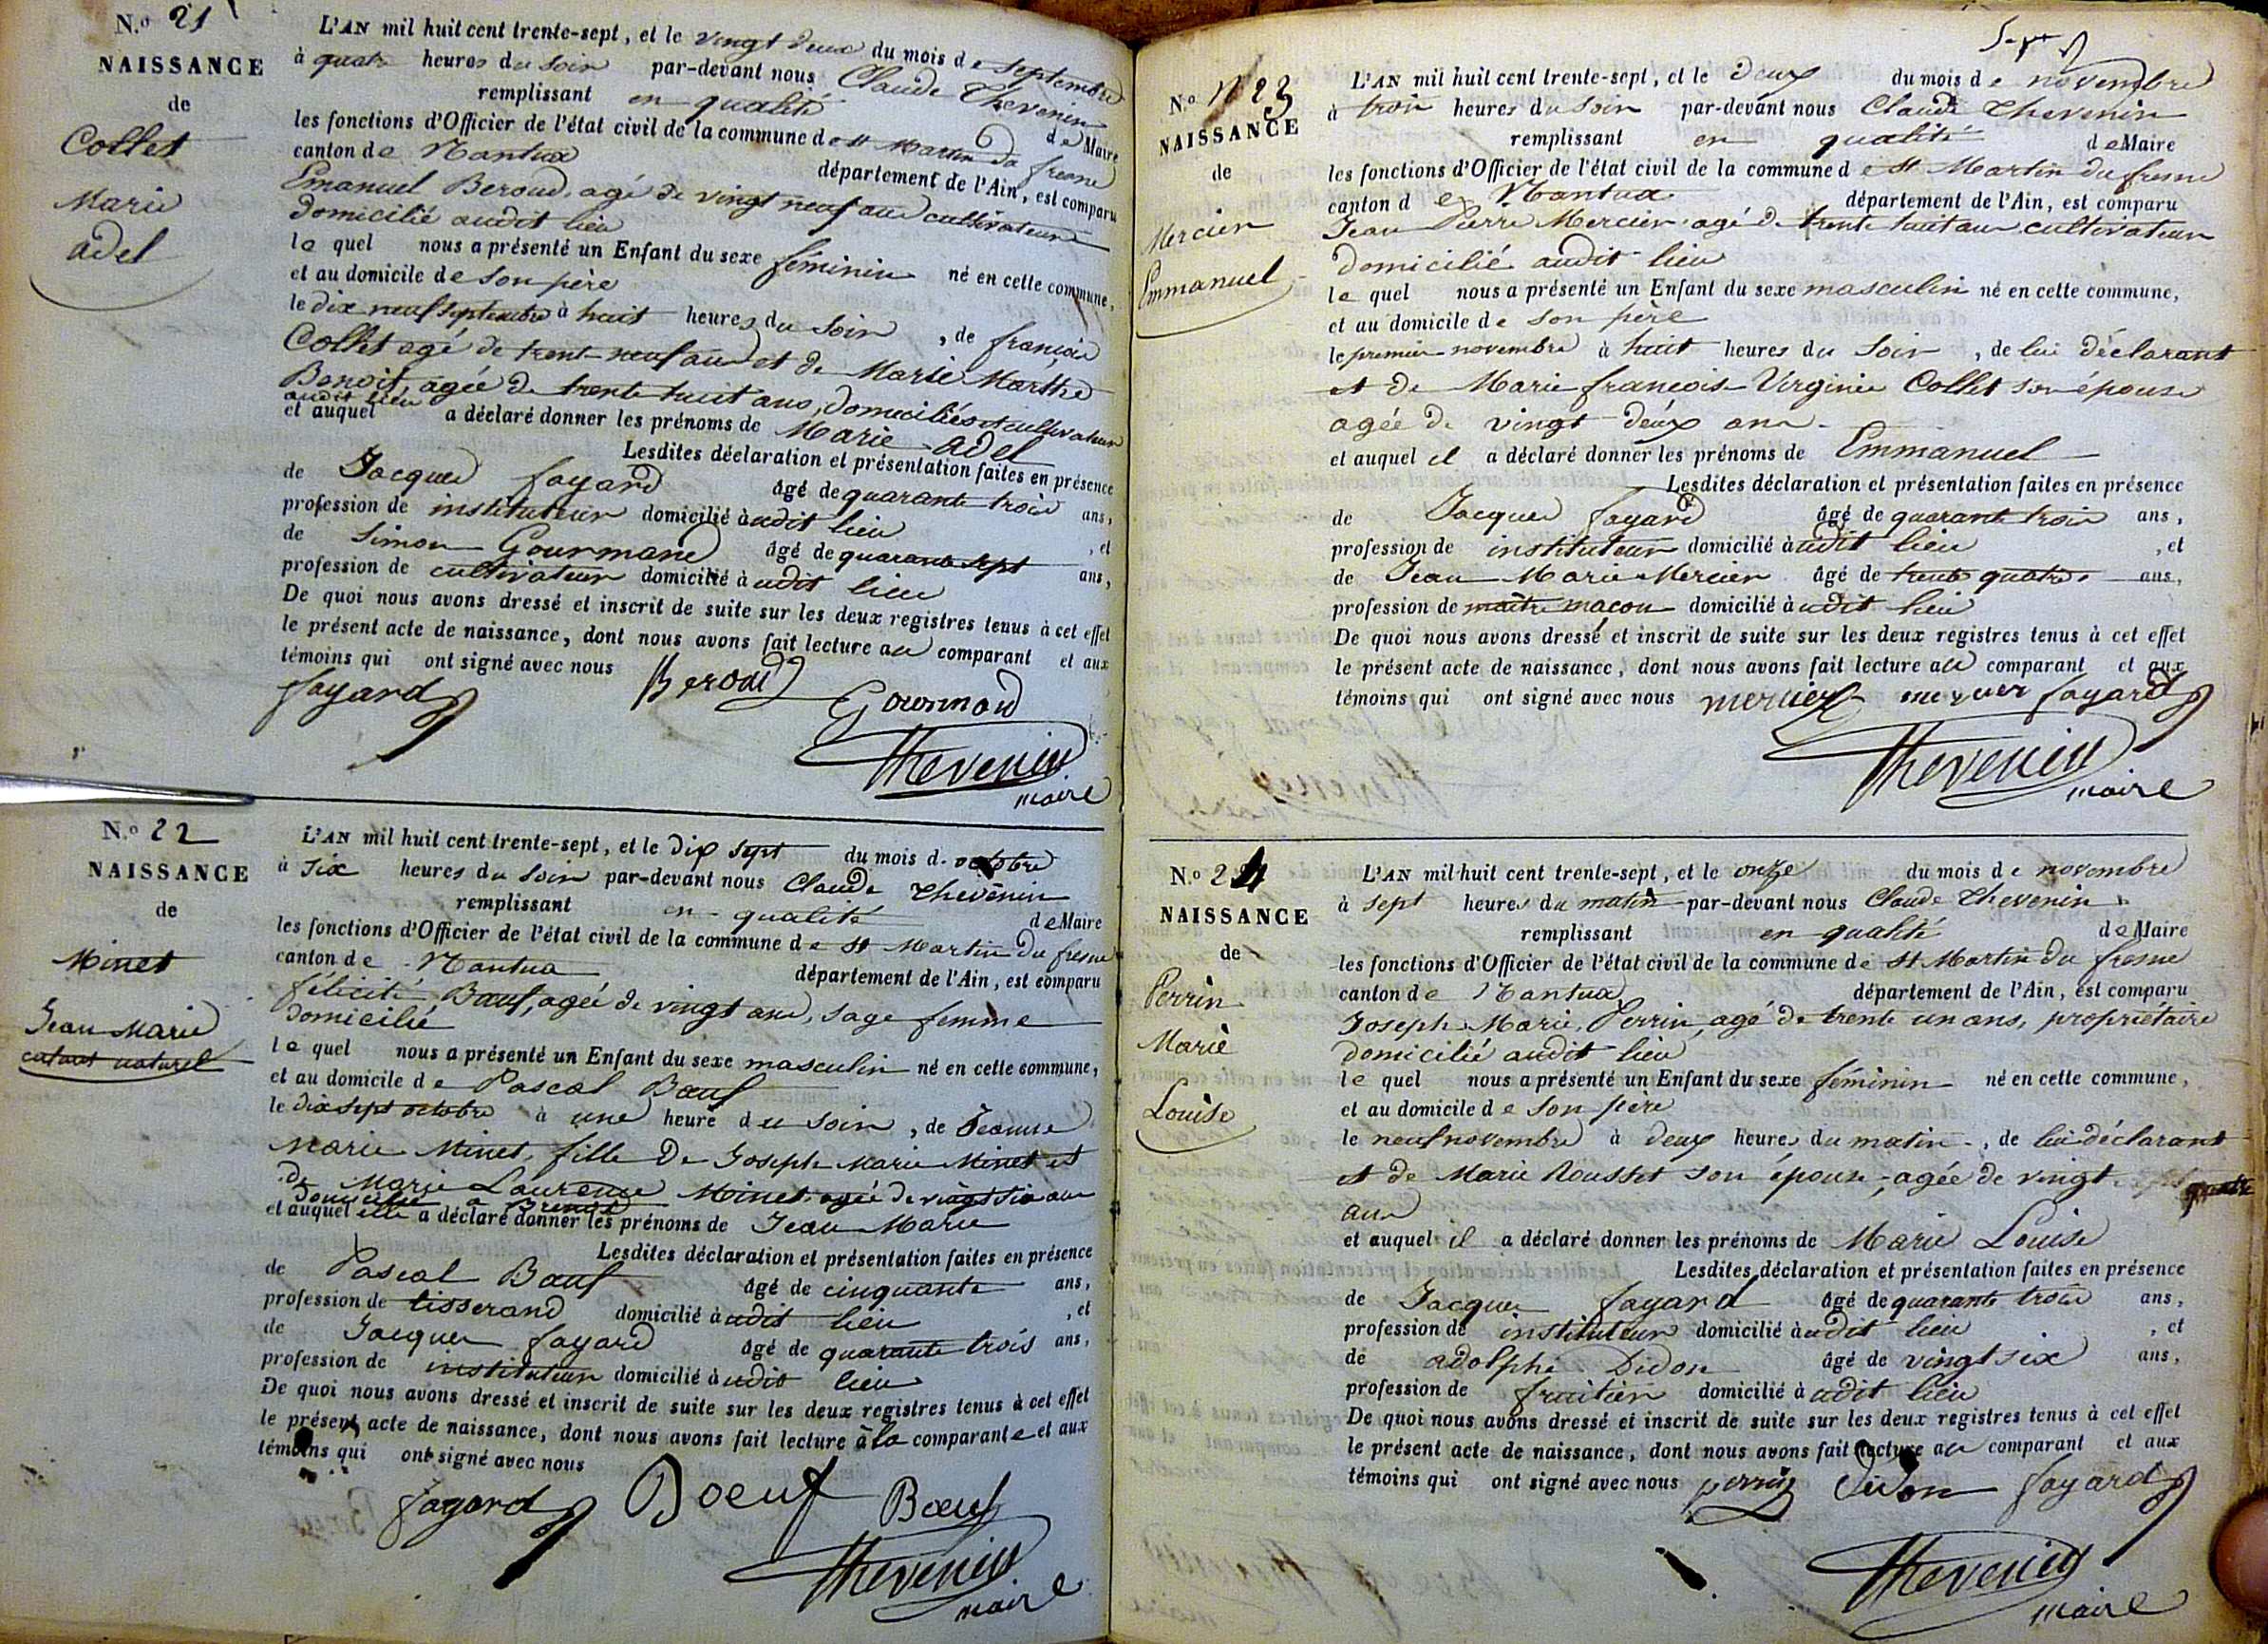 N.o 21
NAISSANCE
de
Collet
Marie
adel
L'AN mil huit cent trente-sept, et le vingt deux du mois de septembre
à quatre heures du soir par-devant nous Claude Thevenin
remplissant en qualité de Maire
les fonctions d'Officier de l'état civil de la commune de st Martin du fresne
canton de Nantua département de l'Ain, est comparu
Emanuel Beroud, agé de vingt neuf ans cultivateur
domicilié audit lieu
le quel nous a présenté un Enfant du sexe féminin né en cette commune,
et au domicile de son père
le dix neuf septembre à huit heures du soir, de françois
Collet agé de trent neuf ans et de Marie Marthe
Benoit, agée de trente huit ans, domiciliés et cultivateurs
audit lieu
et auquel a déclaré donner les prénoms de Marie adel
Lesdites déclaration et présentation faites en présence
de Jacques fayard âgé de quarante trois ans,
profession de instituteur domicilié audit lieu, et
de Simon Gourmand âgé de quarante sept ans,
profession de cultivateur domicilié audit lieu
De quoi nous avons dressé et inscrit de suite sur les deux registres tenus à cet effet
le présent acte de naissance, dont nous avons fait lecture au comparant et aux
témoins qui ont signé avec nous Beroud
fayard Gourmand
Thevenin
maire
N.o 22
NAISSANCE
de
Minet
Jean Marie
enfant naturel
L'AN mil huit cent trente-sept, et le dix sept du mois d. octobre
à six heures du soir par-devant nous Claude Thevenin
remplissant en qualité de Maire
les fonctions d'Officier de l'état civil de la commune de st Martin du fresne
canton de Nantua département de l'Ain, est comparu
félicité Bœuf, agée de vingt ans, sage femme
domicilié
le quel nous a présenté un Enfant du sexe masculin né en cette commune,
et au domicile de Pascal Bœuf
le dix sept octobre à une heure du soir, de Jeanne
Marie Minet, fille de Joseph Marie Minet et
de Marie Laurence Minet, agée de vingt six ans
domiciliée a
et auquel elle a déclaré donner les prénoms de Jean Marie
Lesdites déclaration et présentation faites en présence
de Pascal Bœuf âgé de cinquante ans,
profession de tisserand domicilié audit lieu, et
de Jacques fayard âgé de quarante trois ans,
profession de instituteur domicilié audit lieu
De quoi nous avons dressé et inscrit de suite sur les deux registres tenus à cet effet
le présent acte de naissance, dont nous avons fait lecture à la comparante et aux
témoins qui ont signé avec nous
fayard Boeuf Bœuf
Thevenin
maire
N.o 23
NAISSANCE
de
Mercier
Emmanuel
L'AN mil huit cent trente-sept, et le deux du mois de novembre
à trois heures du soir par-devant nous Claude Thevenin
remplissant en qualité de Maire
les fonctions d'Officier de l'état civil de la commune de st Martin du fresne
canton de Nantua département de l'Ain, est comparu
Jean Pierre Mercier agé de trente huit ans cultivateur
domicilié audit lieu
le quel nous a présenté un Enfant du sexe masculin né en cette commune,
et au domicile de son père
le premier novembre à huit heures du soir, de lui déclarant
et de Marie françois Virginie Collet son épouse
agée de vingt deux ans
et auquel il a déclaré donner les prénoms de Emmanuel
Lesdites déclaration et présentation faites en présence
de Jacques fayard âgé de quarante trois ans,
profession de instituteur domicilié audit lieu, et
de Jean Marie Mercier âgé de trente quatre ans,
profession de maître maçon domicilié audit lieu
De quoi nous avons dressé et inscrit de suite sur les deux registres tenus à cet effet
le présent acte de naissance, dont nous avons fait lecture au comparant et aux
témoins qui ont signé avec nous mercier mercier fayard
Thevenin
maire
N.o 24
NAISSANCE
de
Perrin
Marie
Louise
L'AN mil huit cent trente-sept, et le onze du mois de novembre
à sept heures du matin par-devant nous Claude Thevenin
remplissant en qualité de Maire
les fonctions d'Officier de l'état civil de la commune de st Martin du fresne
canton de Nantua département de l'Ain, est comparu
Joseph Marie Perrin, agé de trente un ans, propriétaire
domicilié audit lieu
le quel nous a présenté un Enfant du sexe féminin né en cette commune,
et au domicile de son père
le neuf novembre à deux heures du matin, de lui déclarant
et de Marie Rousset son épouse, agée de vingt quatre
ans
et auquel il a déclaré donner les prénoms de Marie Louise
Lesdites déclaration et présentation faites en présence
de Jacques fayard âgé de quarante trois ans,
profession de instituteur domicilié audit lieu, et
de adolphe Didon âgé de vingt six ans,
profession de fruitier domicilié à udit lieu
De quoi nous avons dressé et inscrit de suite sur les deux registres tenus à cet effet
le présent acte de naissance, dont nous avons fait lecture au comparant et aux
témoins qui ont signé avec nous perrin Didon fayard
Thevenin
maire